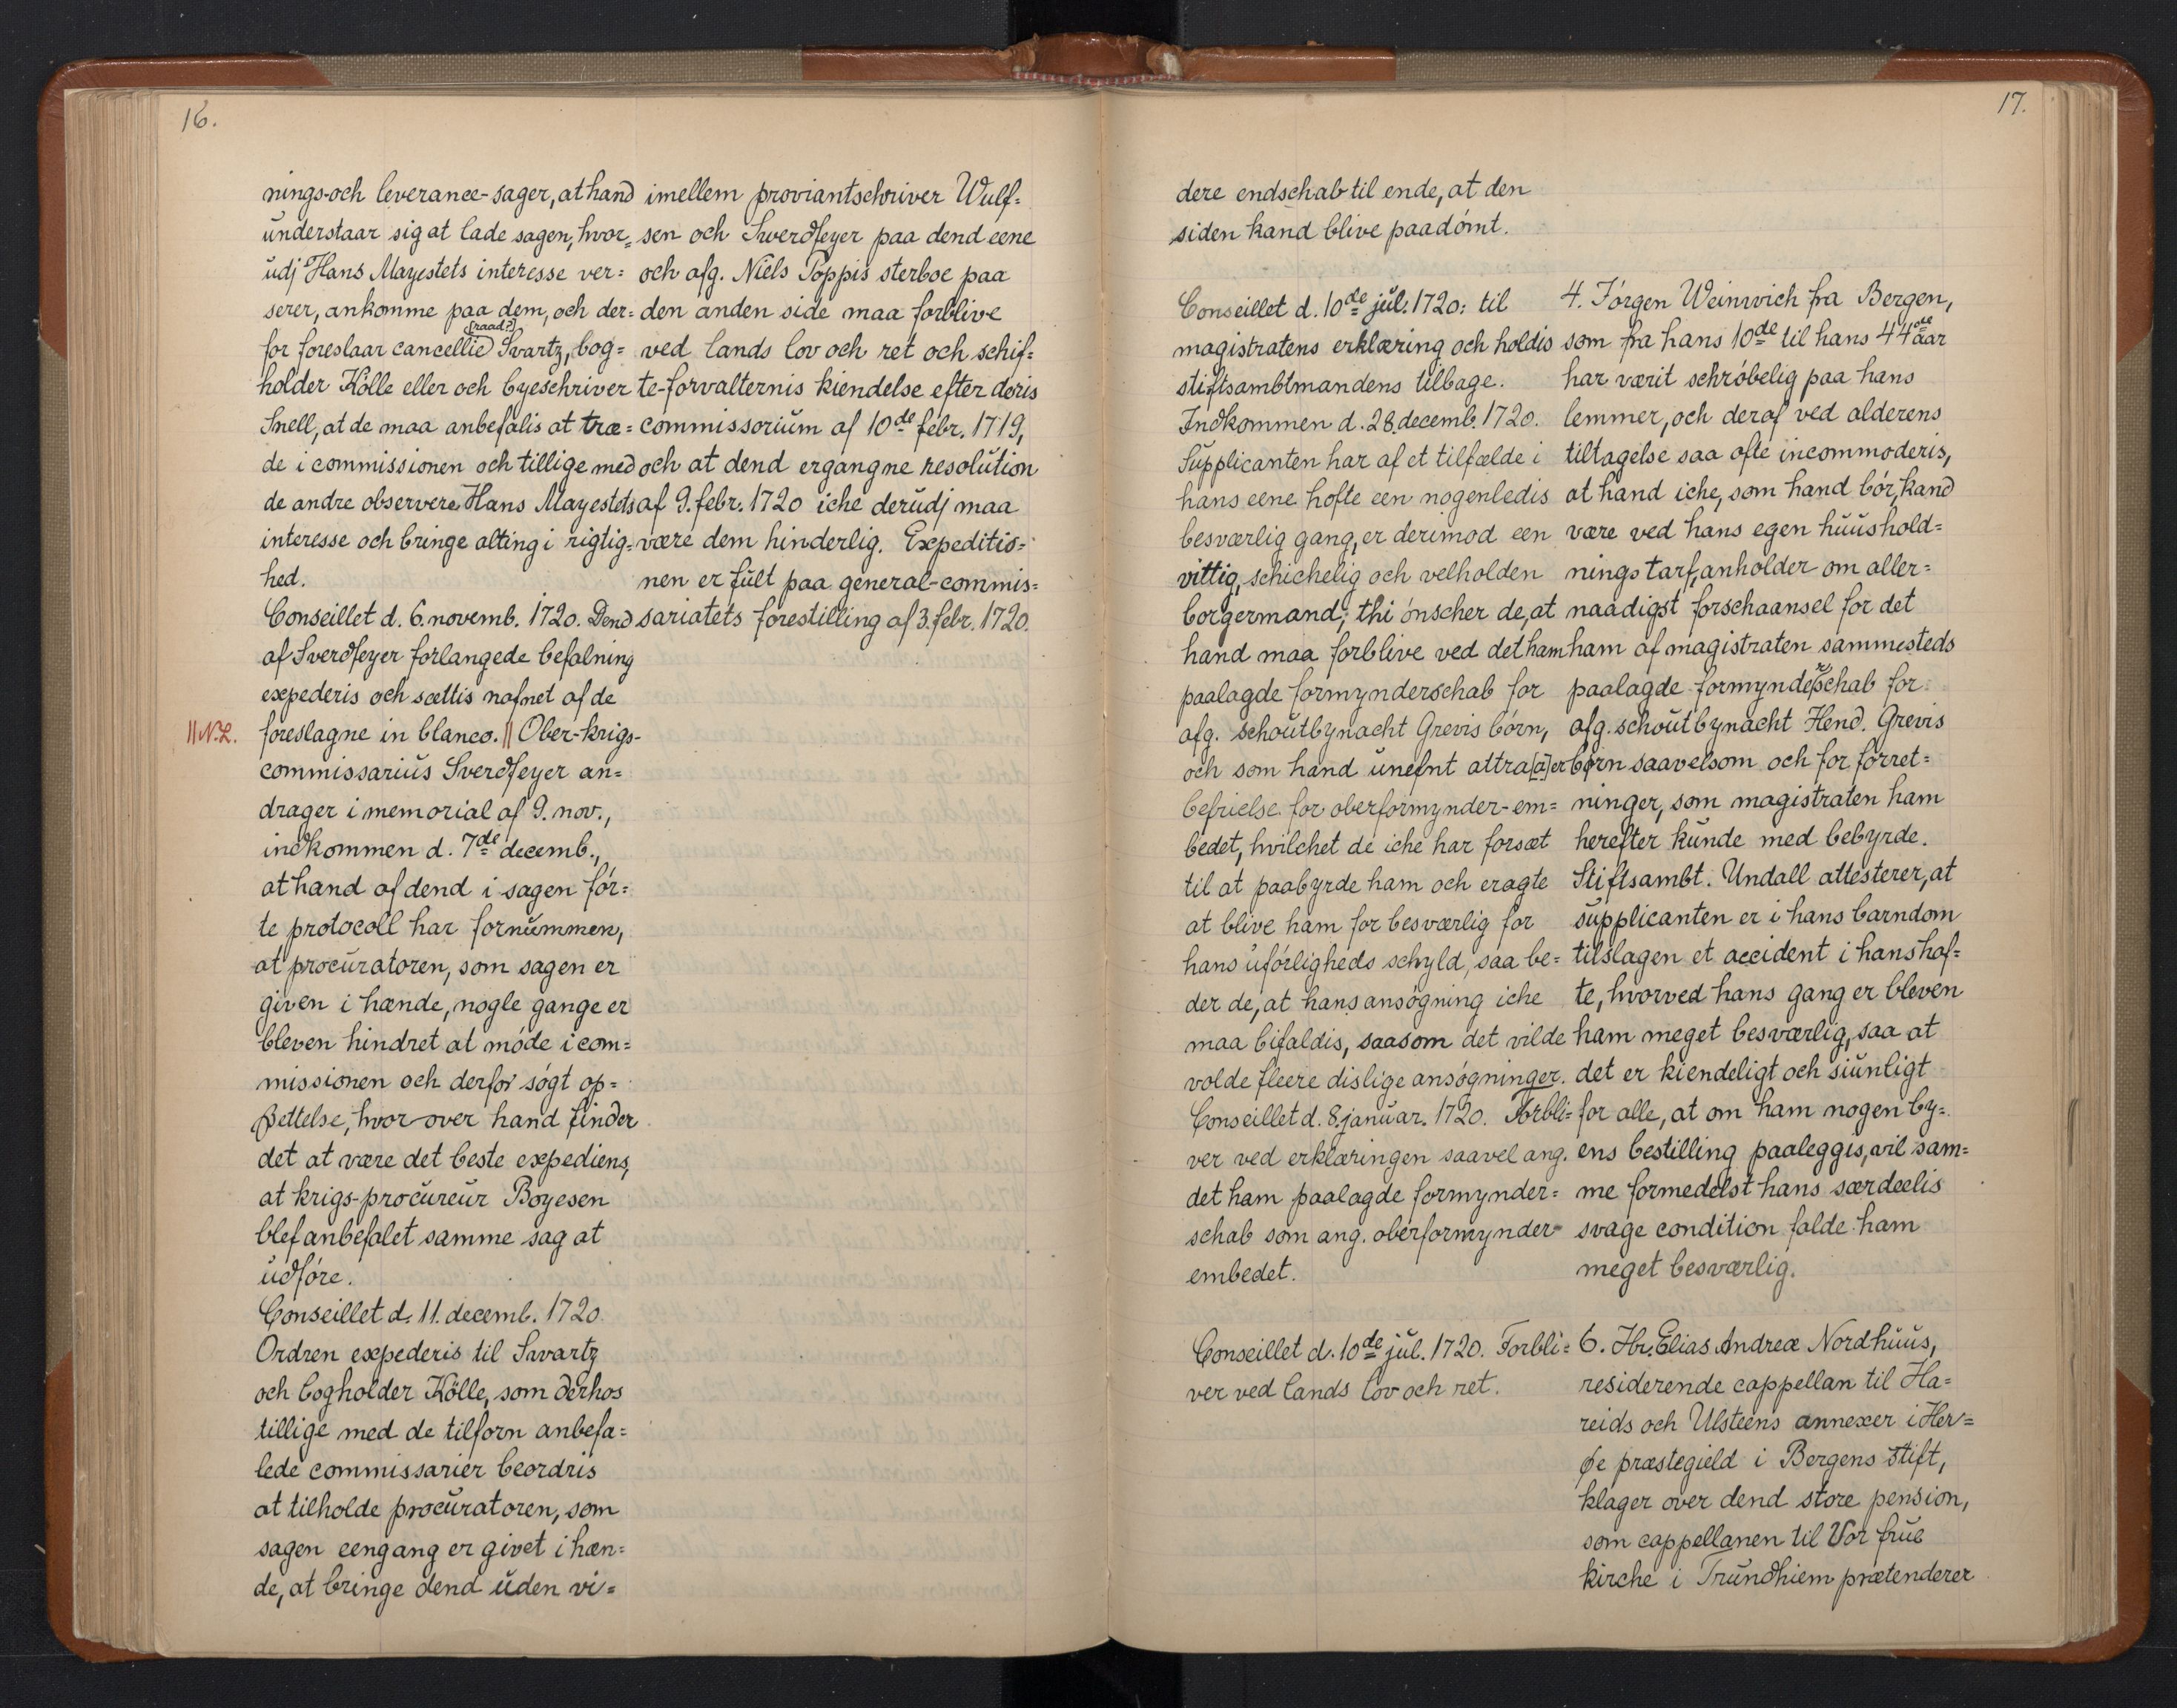 16.
nings-och leverance-sager, at hand
understaar sig at lade sagen, hvor=
udj Hans Mayestets interesse ver=
serer, ankomme paa dem, och der=
[raad?]
for foreslaar cancellie Svartz, bog=
holder Kölle eller och byeschriver
Snell, at de maa anbefalis at træ=
de i commissionen och tillige med
de andre observere Hans Mayestets
interesse och bringe alting i rigtig=
hed.
Conseillet d. 6. novemb. 1720. Dend
af Sverdfeyer forlangede befalning
expederis och sættis nafnet af de
|| N.L. foreslagne in blanco. || Ober-krigs-
commissarius Sverdfeyer an=
drager i memorial af 9. nov.,
indkommen d. 7de decemb.,
at hand af dend i sagen før=
te protocoll har fornummen,
at procuratoren, som sagen er
given i hænde, nogle gange er
bleven hindret at møde i com=
missionen och derfor søgt op=
settelse, hvor over hand finder
det at være det beste expediens,
at krigs-procureur Boyesen
blef anbefalet samme sag at
udføre.
Conseillet d. 11. decemb. 1720.
Ordren expederis til Svartz
och bogholder Kölle, som derhos
tillige med de tilforn anbefa=
lede commissarier beordris
at tilholde procuratoren, som
sagen eengang er givet i hæn=
de, at bringe dend uden vi=
imellem proviantschriver Wulf=
sen och Swerdfeyer paa dend eene
och afg. Niels Poppis sterboe paa
den anden side maa forblive
ved lands lov och ret och schif=
te-forvalternis kiendelse efter deris
commissorium af 10de febr. 1719,
och at dend ergangne resolution
af 9. febr. 1720 iche derudj maa
være dem hinderlig. Expeditio=
nen er fult paa general-commis=
sariatets forestilling af 3. febr. 1720.
17.
dere endschab til ende, at den
siden kand blive paadømt.
Conseillet d. 10de jul. 1720: til
magistratens erklæring och holdis
stiftsambtmandens tilbage.
Indkommen d. 28. decemb. 1720.
Supplicanten har af et tilfælde i
hans eene hofte een nogenledis
besværlig gang, er derimod een
vittig, schichelig och velholden
borgermand; thi ønscher de, at
hand maa forblive ved det ham
paalagde formynderschab for
afg. schoutbynacht Grevis børn,
och som hand unefnt attra[a]er
befrielse for oberformynder-em=
bedet, hvilchet de iche har forsæt
til at paabyrde ham och eragte
at blive ham for besværlig for
hans uførligheds schyld, saa be=
der de, at hans ansøgning iche
maa bifaldis, saasom det vilde
volde fleere dislige ansøgninger.
Conseillet d. 8. januar. 1720. Forbli=
ver ved erklæringen saavel ang.
det ham paalagde formynder=
schab som ang. oberformynder=
embedet.
4. Jørgen Weinwich fra Bergen,
som fra hans 10de til hans 44de aar
har værit schrøbelig paa hans
lemmer, och deraf ved alderens
tiltagelse saa ofte incommoderis,
at hand iche, som hand bør, kand
være ved hans egen huushold=
nings tarf, anholder om aller=
naadigst forschaansel for det
ham af magistraten sammesteds
paalagde formynderschab for
afg. schoutbynacht Hend. Grevis
børn saavelsom och for forret=
ninger, som magistraten ham
herefter kunde med bebyrde.
Stiftsambt. Undall attesterer, at
supplicanten er i hans barndom
tilslagen et accident i hans hof=
te, hvorved hans gang er bleven
ham meget besværlig, saa at
det er kiendeligt och siunligt
for alle, at om ham nogen by=
ens bestilling paaleggis, vil sam=
me formedelst hans særdeelis
svage condition falde ham
meget besværlig.
Conseillet d. 10de jul. 1720. Forbli=
ver ved lands lov och ret.
6. Hr. Elias Andreæ Nordhuus,
residerende cappellan til Ha=
reids och Ulsteens annexer i Her=
øe præstegield i Bergens stift,
klager over dend store pension,
som cappellanen til Vor frue
kirche i Trundhiem prætenderer